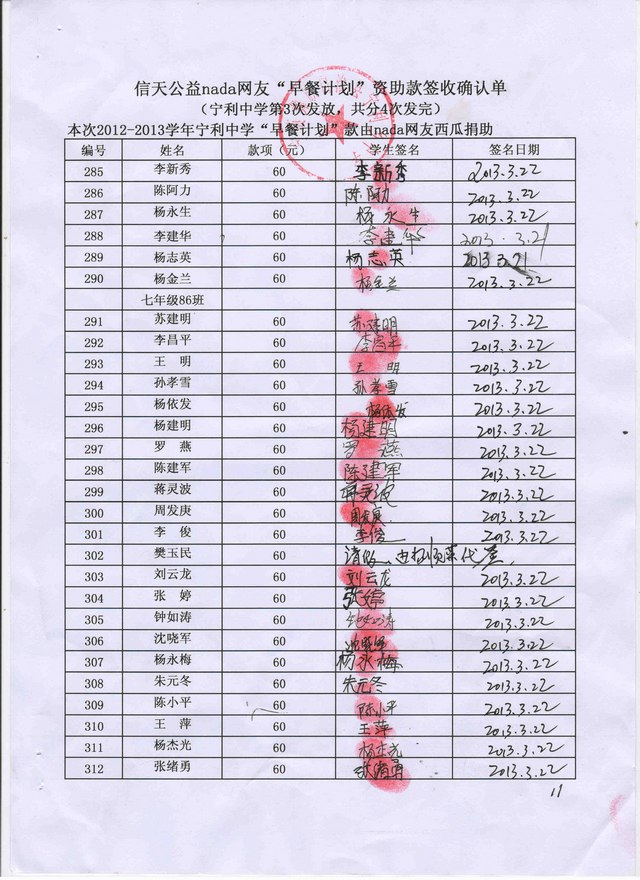 信天公益nada网友“早餐计划”资助款签收确认单
（宁利中学第3次发放，共分4次发完）
本次2012-2013学年宁利中学“早餐计划”款由nada网友西瓜捐助
编号 姓名 款项（元） 学生签名 签名日期
285 李新秀 60 李新秀 2013.3.22
286 陈阿力 60 陈阿力 2013.3.22
287 杨永生 60 杨永生 2013.3.22
288 李建华 60 李建华 2013.3.21
289 杨志英 60 杨志英 2013 3.21
290 杨金兰 60 杨金兰 2013.3.22
七年级86班
291 苏建明 60 苏建明 2013.3.22
292 李昌平 60 李昌平 2013.3.22
293 王 明 60 王 明 2013.3.22
294 孙孝雪 60 孙孝雪 2013.3.22
295 杨依发 60 杨依发 2013.3.22
296 杨建明 60 杨建明 2013.3.22
297 罗 燕 60 罗 燕 2013.3.22
298 陈建军 60 陈建军 2013.3.22
299 蒋灵波 60 2013.3.22
300 周发庚 60 周发庚 2013.3.22
301 李 俊 60 李俊 2013.3.22
302 樊玉民 60 请假
303 刘云龙 60 刘云龙 2013.3.22
304 张 婷 60 张婷 2013.3.22
305 钟如涛 60 钟如涛 2013.3.22
306 沈晓军 60 沈晓军 2013.3.22
307 杨永梅 60 杨永梅 2013.3.22
308 朱元冬 60 朱元冬 2013.3.22
309 陈小平 60 陈小平 2013.3.22
310 王 萍 60 王萍 2013.3.22
311 杨杰光 60 杨杰光 2013.3.22
312 张绪勇 60 张绪勇 2013.3.22
11